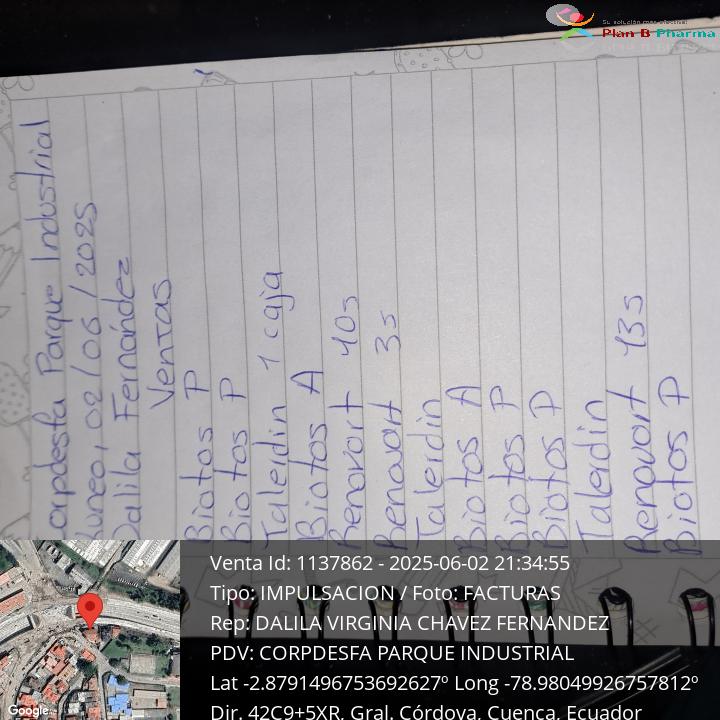 Su solución más efectiva
Plan B Pharma
Corpdesfa Parque Industrial
Lunes, 02/06/2025
Dalila Fernández
Ventas
Biotos P
Biotos P
Taleidin 1 caja
Biotos A
Renovort 40s
Renovort 3s
Taleidin
Biotos A
Biotos P
Biotos P
Taleidin
Renovort 43s
Biotos P
Venta Id: 1137862 - 2025-06-02 21:34:55
Tipo: IMPULSACION / Foto: FACTURAS
Rep: DALILA VIRGINIA CHAVEZ FERNANDEZ
PDV: CORPDESFA PARQUE INDUSTRIAL
Lat -2.8791496753692627º Long -78.98049926757812º
Dir. 42C9+5XR, Gral. Córdova, Cuenca, Ecuador
Google